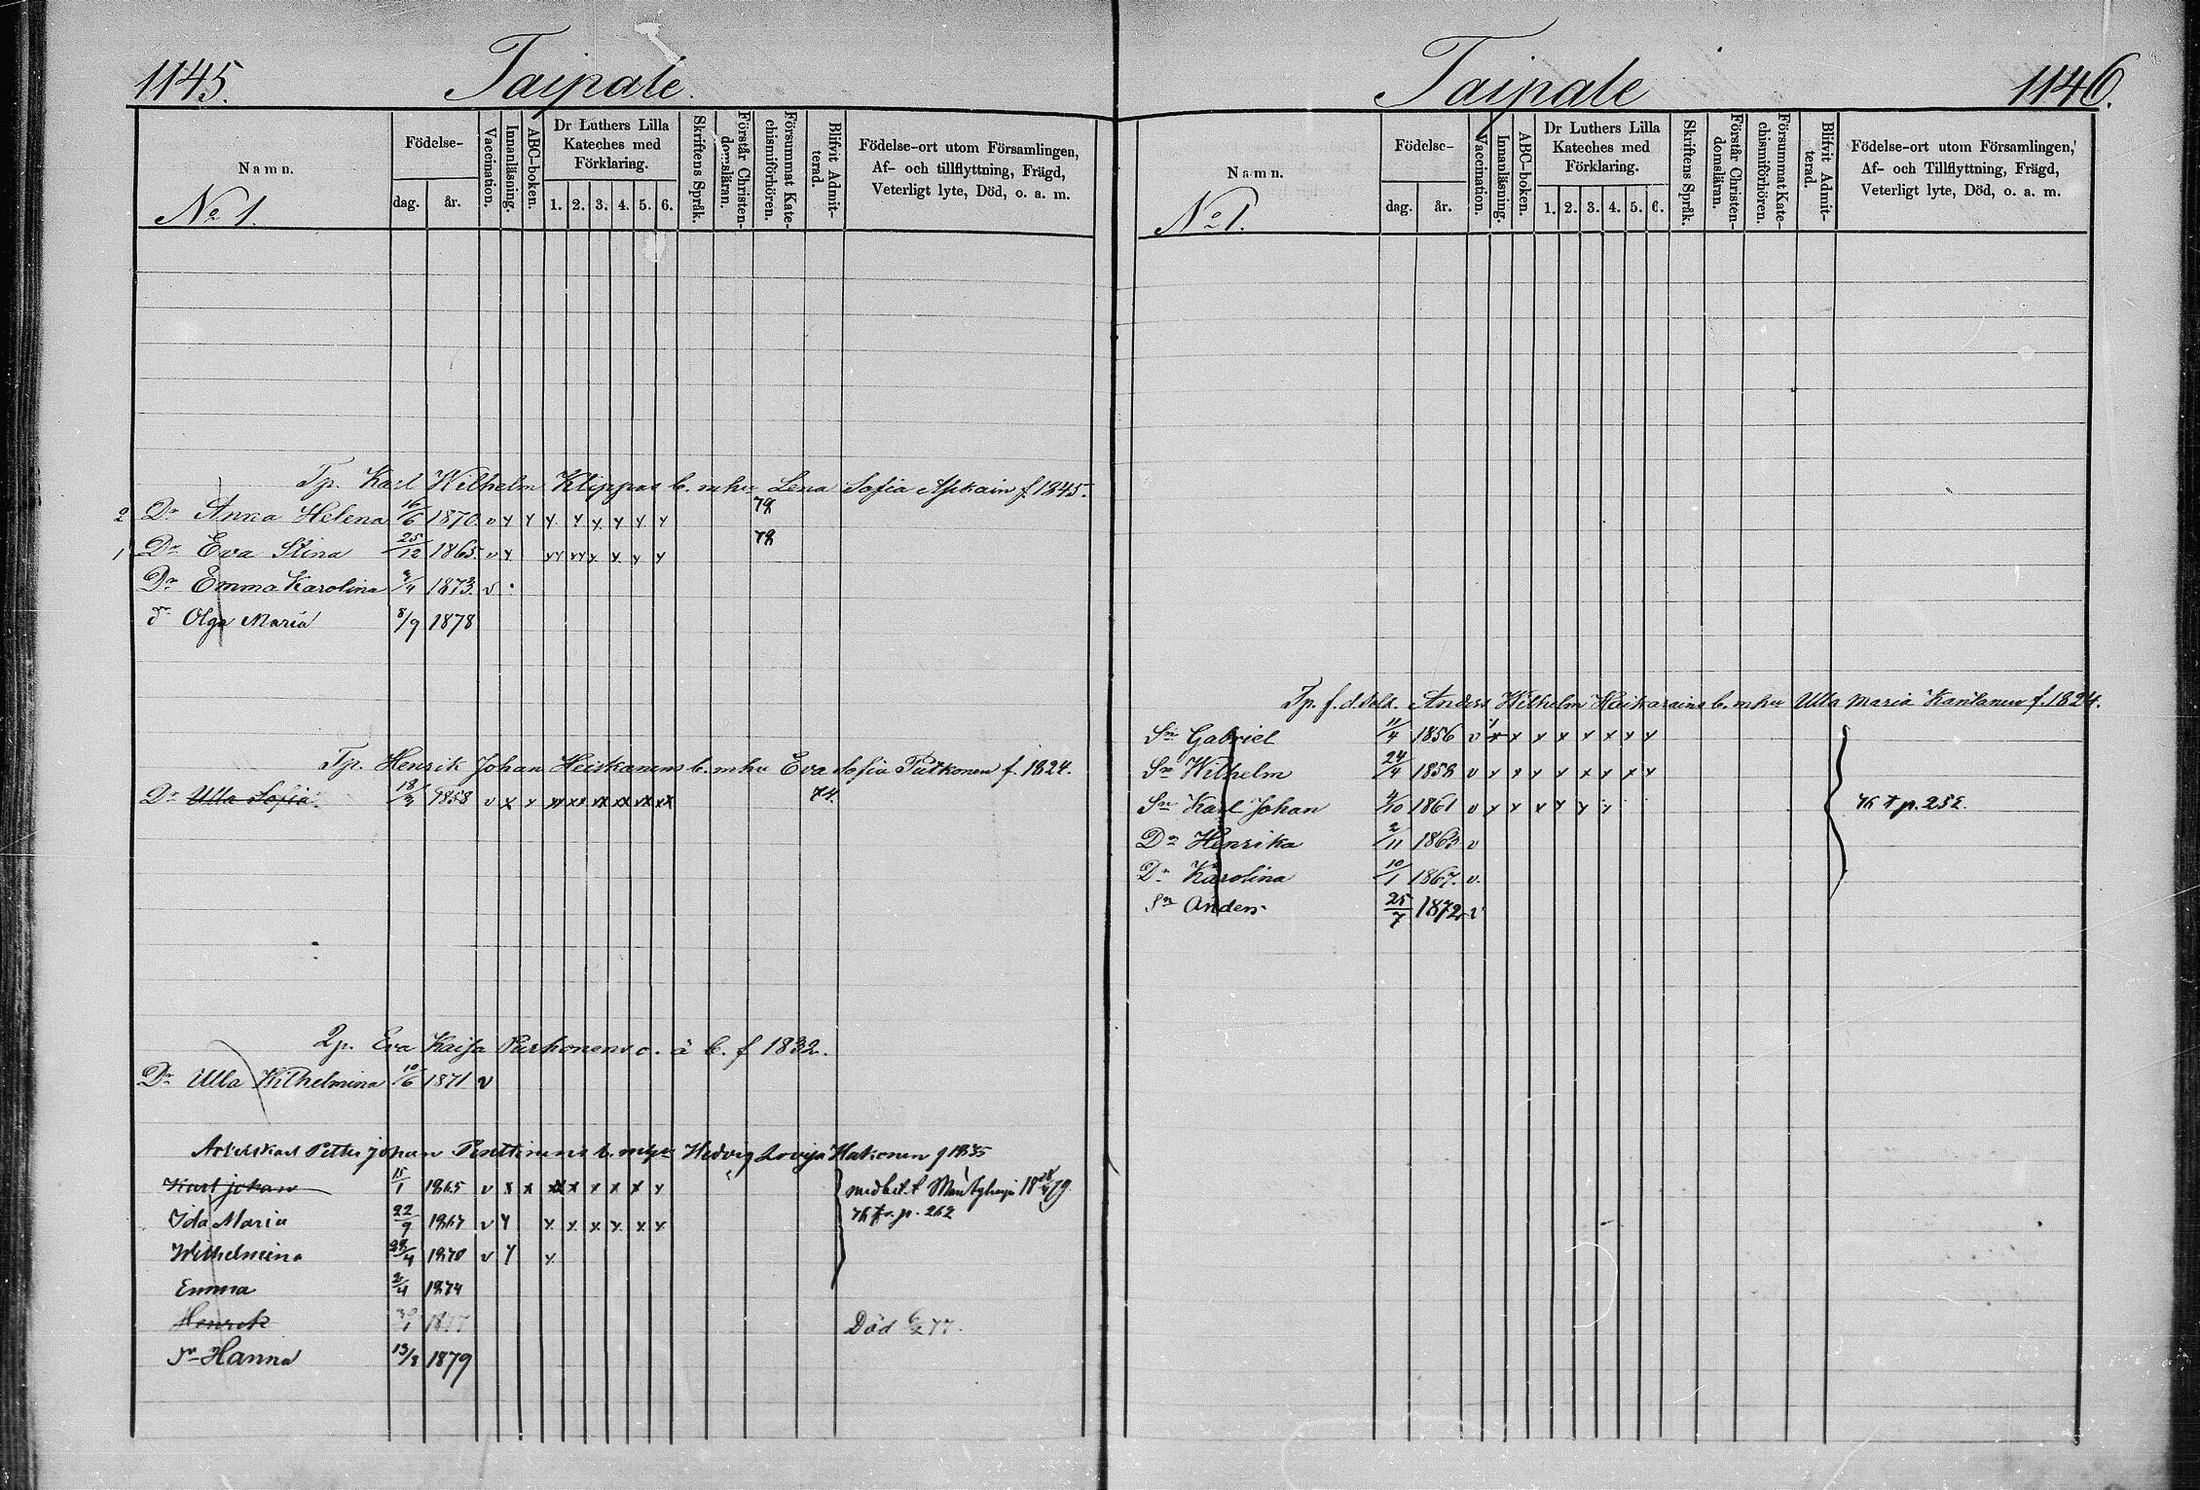 1145.
Taipale.
Namn.
No 1.
Födelse-
dag.
år.
Vaccination.
Innanläsning.
ABC-boken.
Dr Luthers Lilla
Kateches med
Förklaring.
1. 2. 3. 4. 5. 6.
Skriftens Språk.
Förstår Christen-
domsläran.
Försummat Kate-
chismiförhören.
Blifvit Admit-
terad.
Födelse-ort utom Församlingen,
Af- och tillflyttning, Frägd,
Veterligt lyte, Död, o. a. m.
Tp. Karl Wilhelm b. m hu Lena Sofia f. 1845.
2 Dr Anna Helena 16/6 1870 v y y y y y y y y 79
1 Dr Eva Stina 25/12 1865 v y yy yy y y y y 79
Dr Emma Karolina 1873. v
dr Olga Maria 8/9 1878
Tp. Henrik Johan Heiskanens b. m hu Eva Sofia Putkonen f. 1824.
Dr Ulla Sofia. 18/3 1858 v x x xx xx xx xx xx xx 74.
Eva Kajsa f 1832.
Dr Ulla Wilhelmina 10/6 1871 v
Petter Johan Penttinens b. m Hedvig Lovisa Hakonen f 1835
Karl Johan 15/1 1865 v x x xx x x x x y
Ida Maria 22/9 1867 v y x x x x x x
p. 262
Wilhelmina 1870 v y x
Emma 2/4 1874
Henrik Död 77.
dr Hanna 13/8 1879
Taipale
1146.
Namn.
No 1.
Födelse-
dag.
år.
Vaccination.
Innanläsning.
ABC-boken.
Dr Luthers Lilla
Kateches med
Förklaring.
1. 2. 3. 4. 5. 6.
Skriftens Språk.
Förstår Christen-
domsläran.
Försummat Kate-
chismiförhören.
Blifvit Admit-
terad.
Födelse-ort utom Församlingen,
Af- och Tillflyttning, Frägd,
Veterligt lyte, Död, o. a. m.
Tp. f. d. Sold. Anders Wilhelm b. m hu Ulla Maria Kantanen f. 1824.
Sn Gabriel 11/4 1856 v x x x x x x x x
Sn Wilhelm 24/4 1858 v x x x x x x x x
Sn Karl Johan 4/10 1861 v y y x y y y
p. 252.
Dr Henrika 2/11 1863 v
Dr Karolina 10/1 1867. v.
Sn Anders 25/7 1872 v